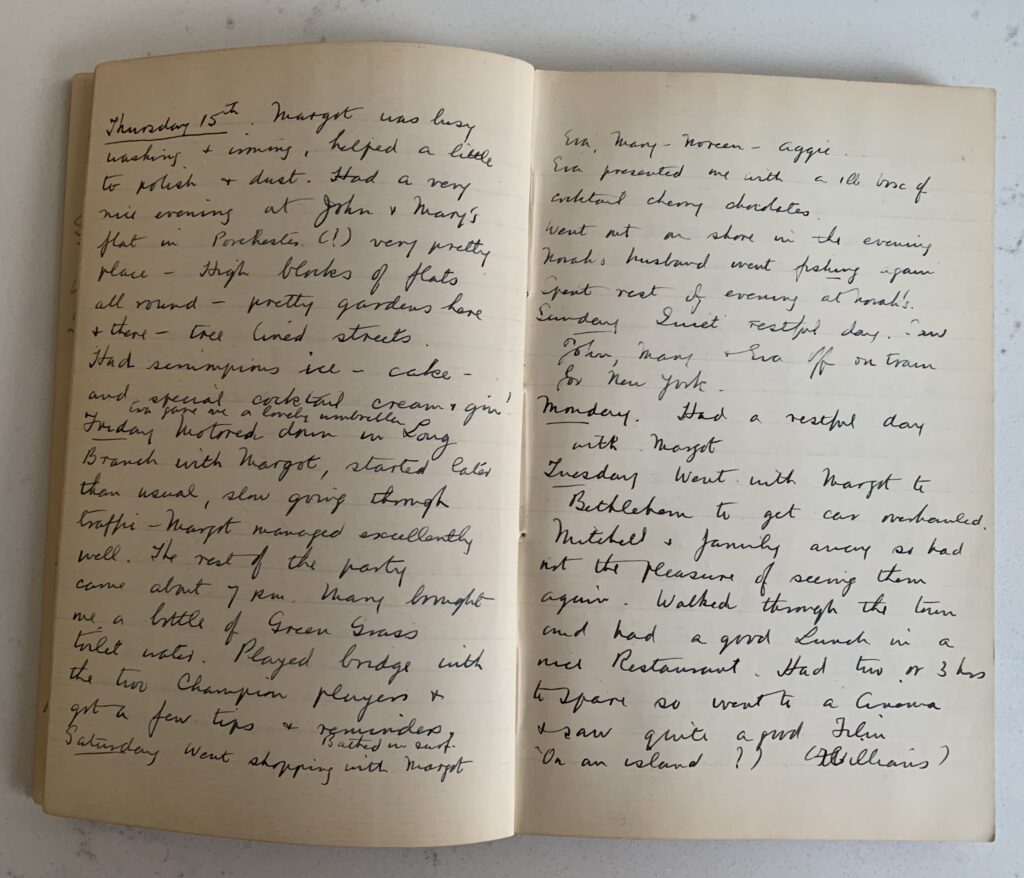 Thursday 15th. Margot was busy
washing & ironing, helped a little
to polish & dust. Had a very
nice evening at John & Mary's
flat in Porchester (?) very pretty
place – High blocks of flats
all round – pretty gardens here
& there – tree lined streets.
Had scrumpious ice – cake –
and special cocktail cream & gin!
Eva gave me a lovely umbrella
Friday Motored down in Long
Branch with Margot, started later
than usual, slow going through
traffic – Margot managed excellently
well. The rest of the party
came about 7 p.m. Mary brought
me a bottle of Green Grass
toilet water. Played bridge with
the two Champion players &
got a few tips & reminders.
Bathed in surf.
Saturday Went shopping with Margot
Eva, Mary – Noreen – Aggie.
Eva presented me with a 1lb box of
cocktail cherry chocolates.
Went out on shore in the evening
Norah's husband went fishing again
Spent rest of evening at Norah's.
Sunday Quiet restful day. Saw
John, Mary & Eva off on train
for New York.
Monday. Had a restful day
with Margot
Tuesday Went with Margot to
Bethlehem to get car overhauled.
Mitchell & family away so had
not the pleasure of seeing them
again. Walked through the town
and had a good Lunch in a
nice Restaurant. Had two or 3 hrs
to spare so went to a Cinema
& saw quite a good Film
'On an island ?) (Williams)